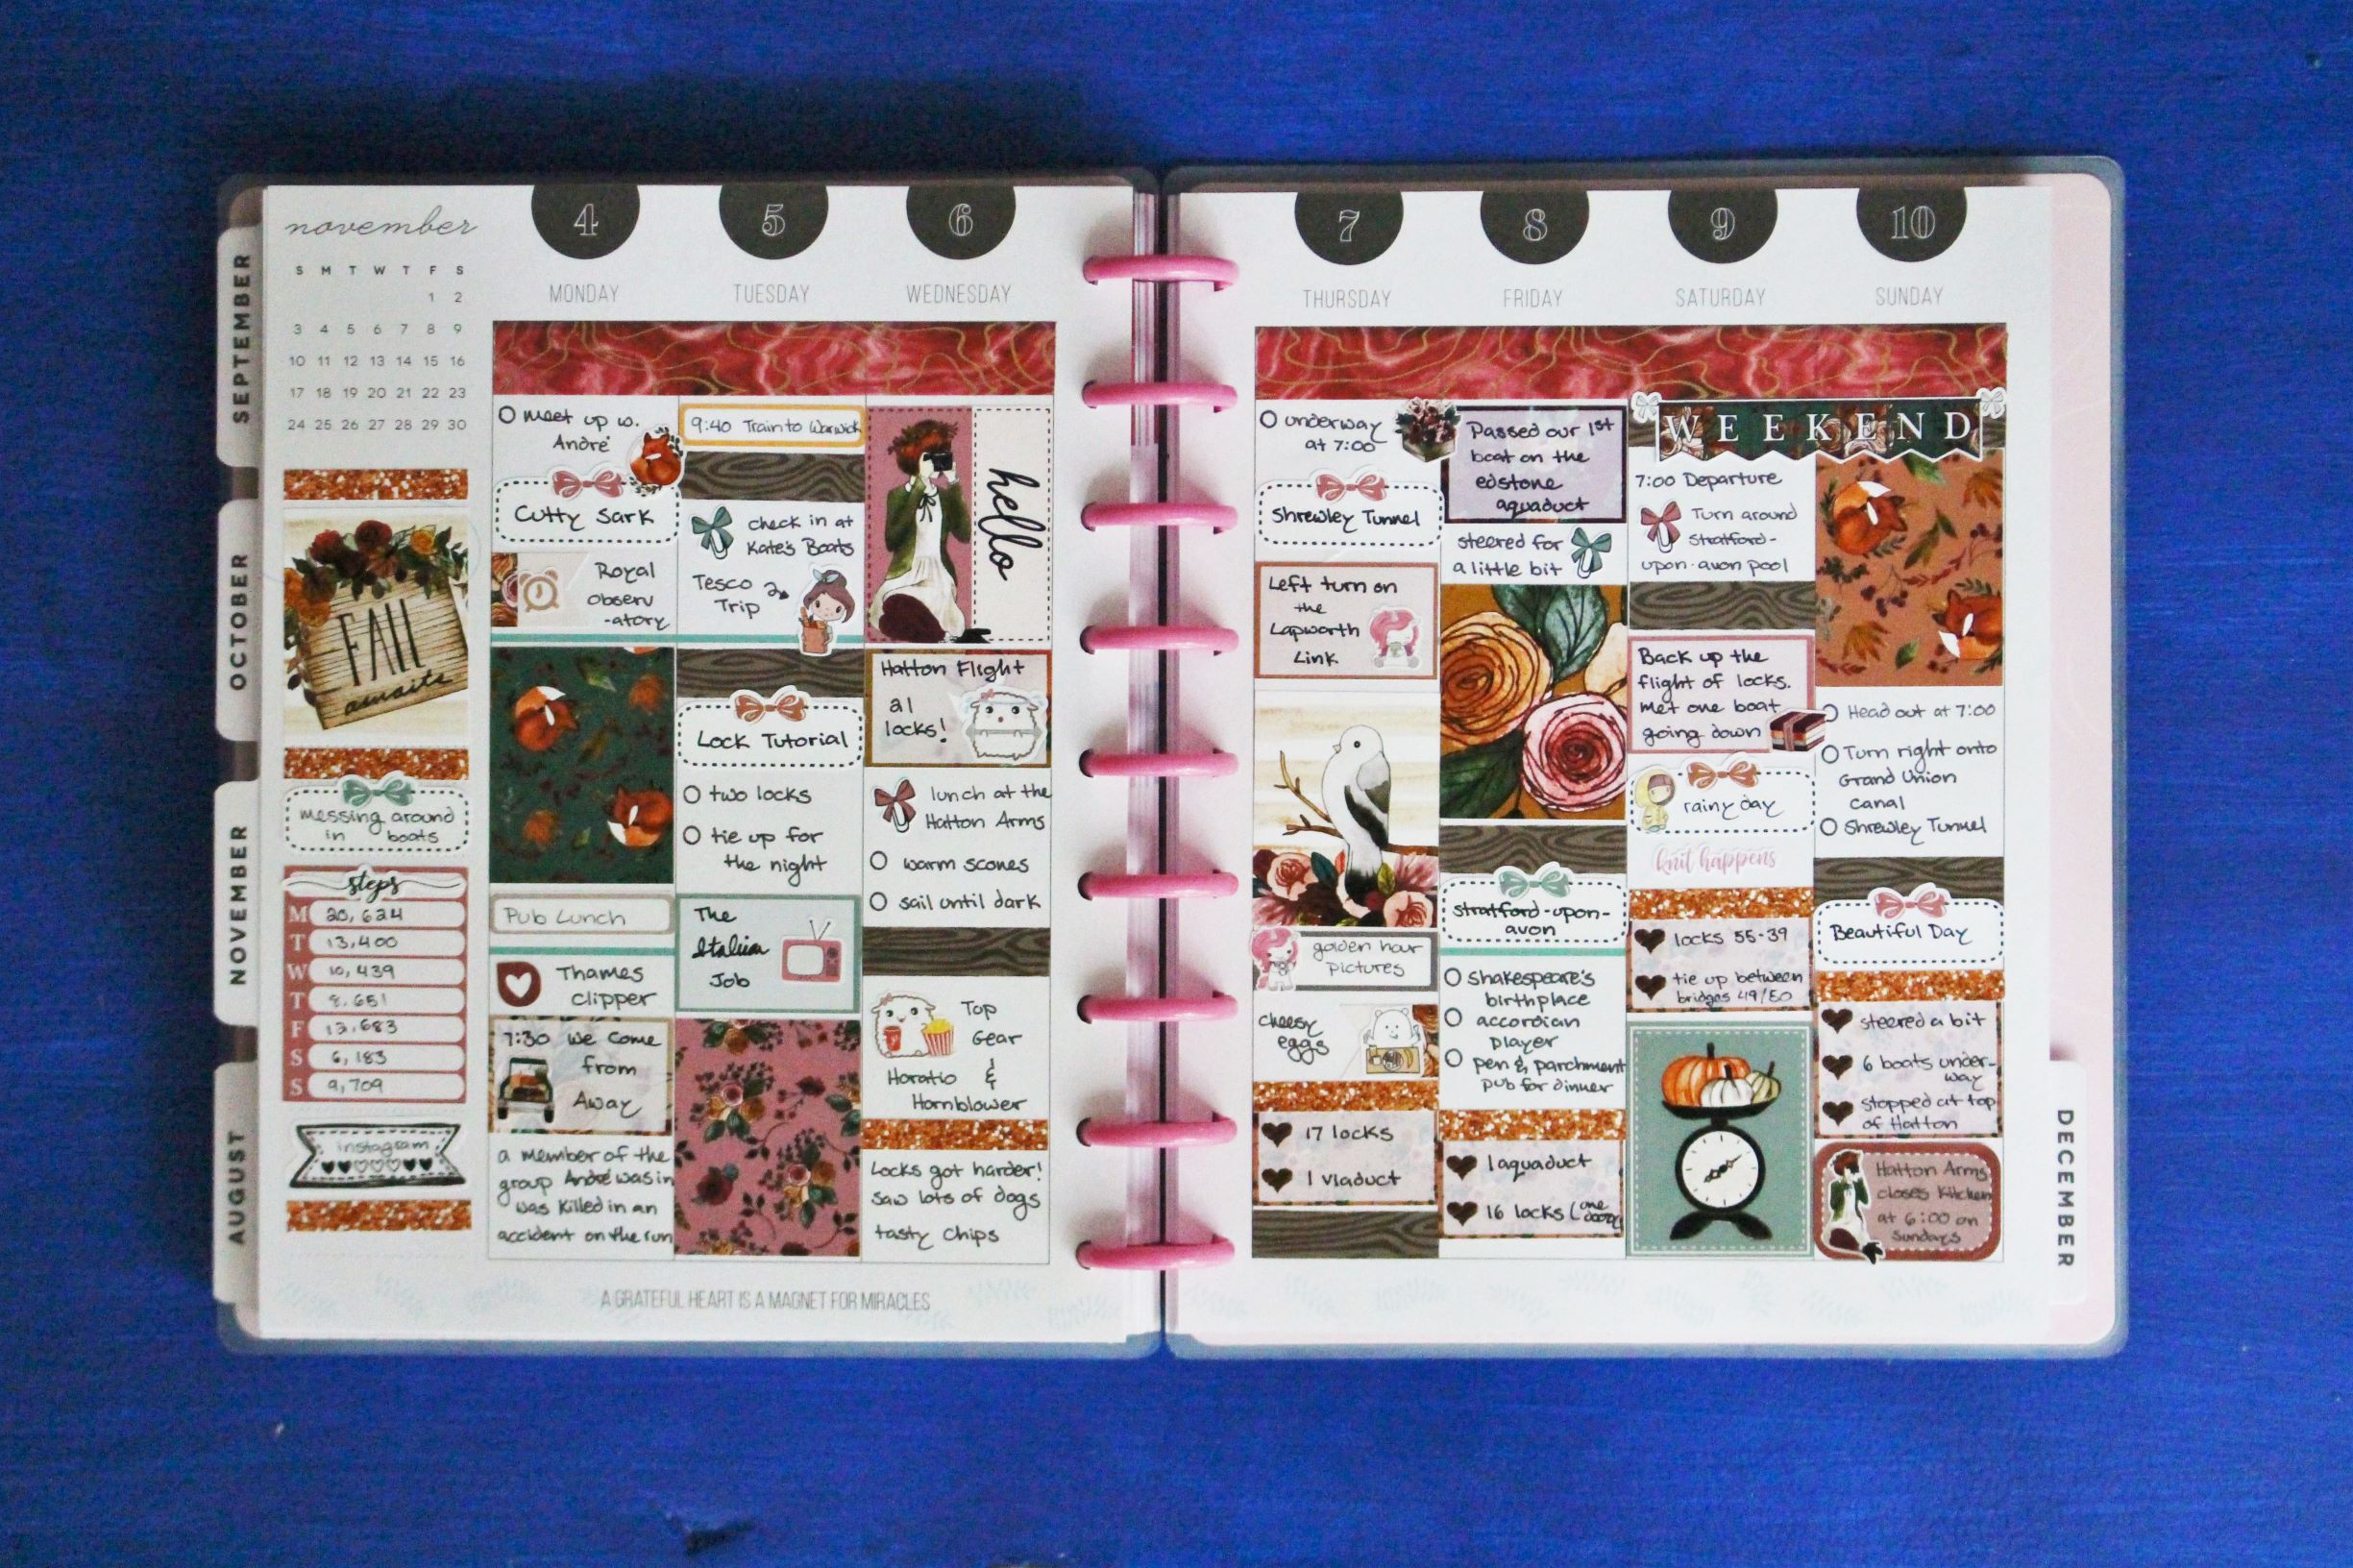 november
S M T W T F S
1 2
3 4 5 6 7 8 9
10 11 12 13 14 15 16
17 18 19 20 21 22 23
24 25 26 27 28 29 30
SEPTEMBER
OCTOBER
NOVEMBER
AUGUST
FALL
awaits
messing around
in boats
steps
M 20,624
T 13,400
W 10,439
T 8,651
F 13,683
S 6,183
S 9,709
instagram
4
MONDAY
meet up w.
André
Cutty Sark
Royal
Observ
-atory
Pub Lunch
Thames
clipper
7:30 We Come
from
Away
a member of the
group André was in
was killed in an
accident on the run
5
TUESDAY
9:40 Train to Warwick
check in at
Kate's Boats
Tesco
Trip
Lock Tutorial
two locks
tie up for
the night
The
Italian
Job
6
WEDNESDAY
hello
Hatton Flight
21
locks!
lunch at the
Hatton Arms
warm scones
sail until dark
Top
Gear
&
Horatio
Hornblower
Locks got harder!
saw lots of dogs
tasty chips
A GRATEFUL HEART IS A MAGNET FOR MIRACLES
7
THURSDAY
underway
at 7:00
Shrewley Tunnel
Left turn on
the
Lapworth
Link
golden hour
pictures
cheesy
eggs
17 locks
1 viaduct
8
FRIDAY
Passed our 1st
boat on the
edstone
aquaduct
steered for
a little bit
stratford-upon-
avon
Shakespeare's
birthplace
accordian
player
pen & parchment
pub for dinner
1 aquaduct
16 locks (one
9
SATURDAY
WEEKEND
7:00 Departure
Turn around
Stratford-
upon-avon pool
Back up the
flight of locks.
met one boat
going down
rainy day
knit happens
locks 55-39
tie up between
bridges 49/50
10
SUNDAY
Head out at 7:00
Turn right onto
Grand Union
Canal
Shrewley Tunnel
Beautiful Day
steered a bit
6 boats under-
way
stopped at top
of Hatton
Hatton Arms
closes kitchen
at 6:00 on
Sundays
DECEMBER